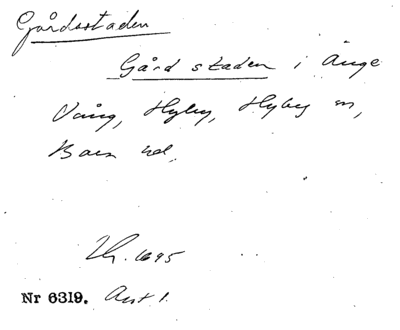 Gårdsstaden
Gård staden i Änge
Vång, Hyby, Hyby sn,
Bara hd,
Lh. 1695
Nr 6319. Avt 1.